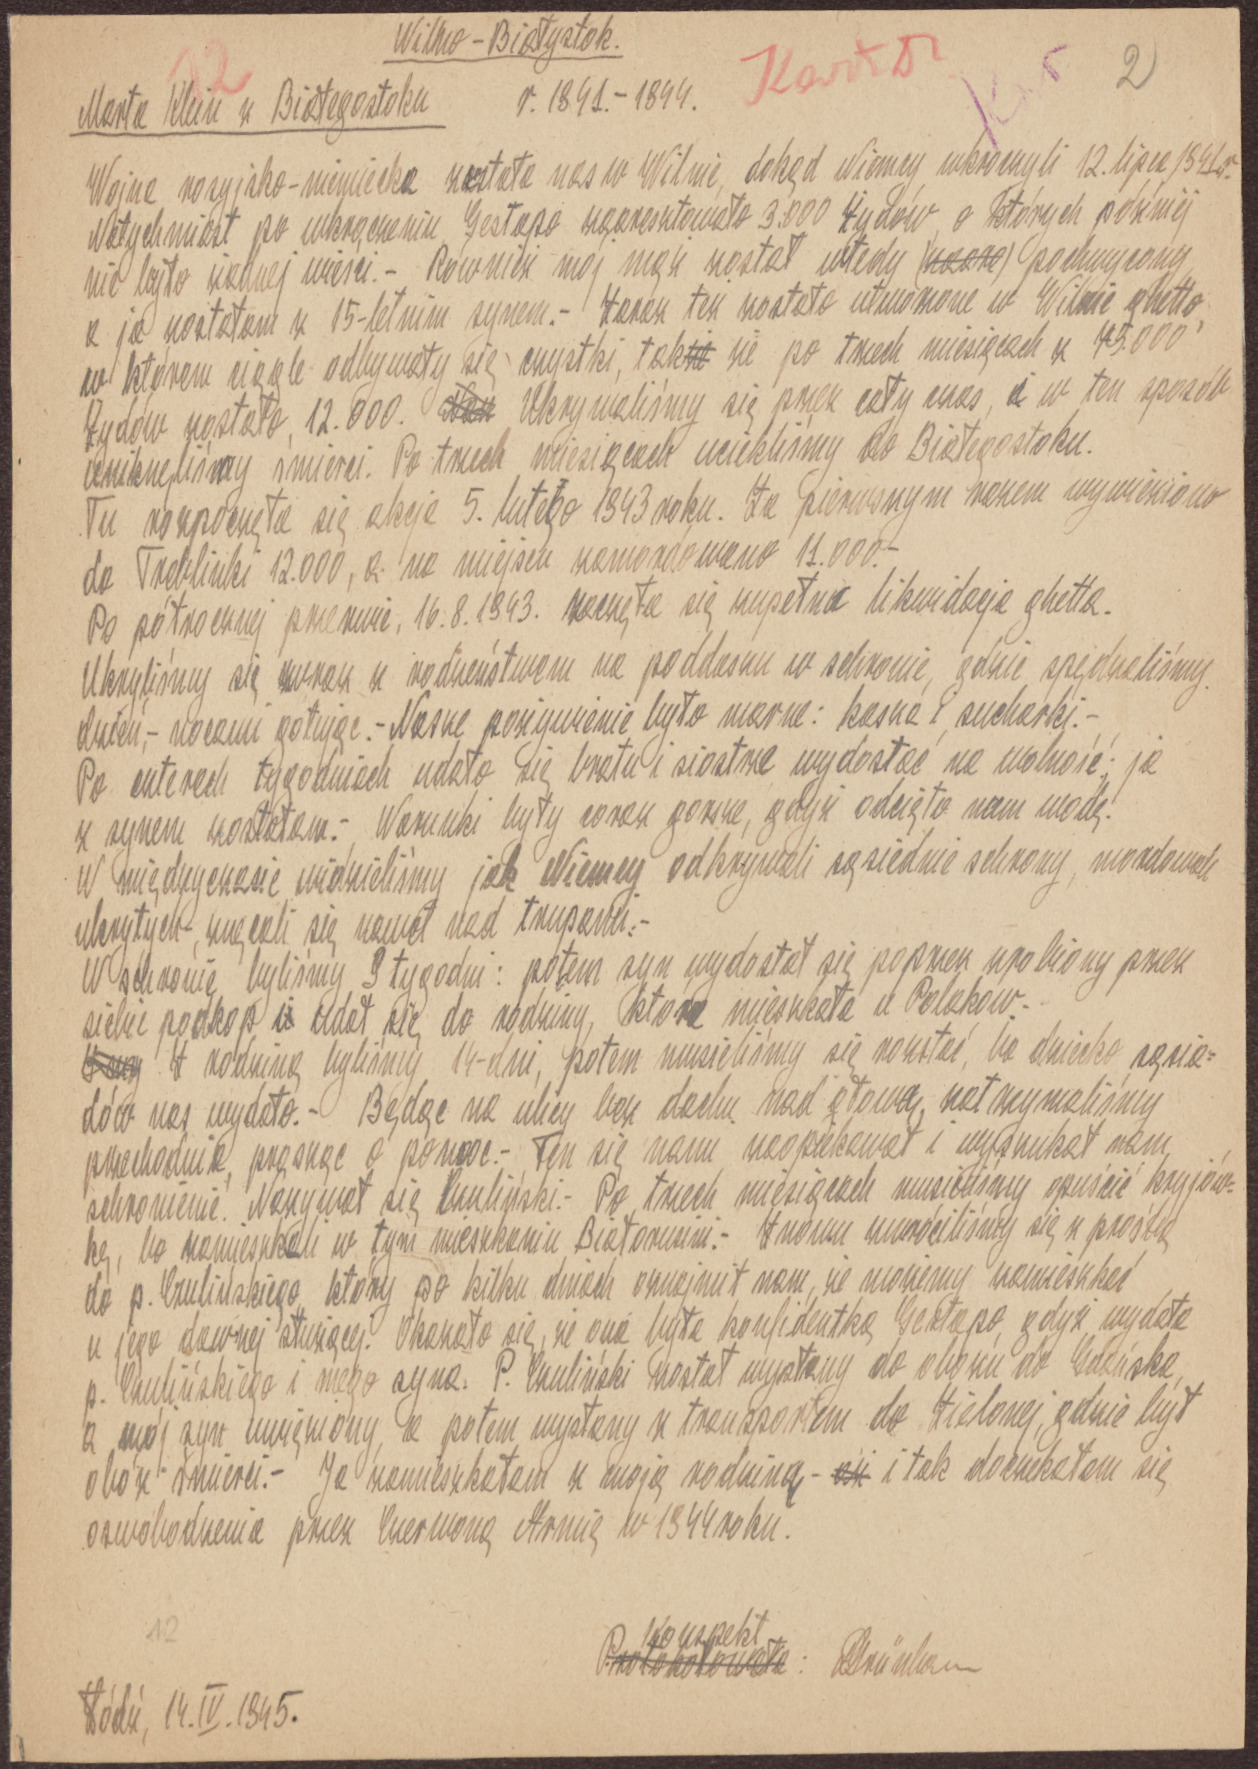 Wilno – Białystok.
12
Karta
2
Marta Klein z Białegostoku r. 1941.-1944.
Wojna rosyjsko-niemiecka zastała nas w Wilnie, dokąd Niemcy wkroczyli 12. lipca 1941 r.
Natychmiast po wkroczeniu Gestapo zaaresztowało 3.000 Żydów, o których później
nie było żadnej wieści.- Również mój mąż został wtedy pochwycony
a ja zostałam z 15-letnim synem.- Zaraz też zostało utworzone w Wilnie ghetto,
w którem ciągle odbywały się czystki, tak że po trzech miesiącach z 45.000
Żydów zostało 12.000. Ukrywaliśmy się przez cały czas, i w ten sposób
uniknęliśmy śmierci. Po trzech miesiącach uciekliśmy do Białegostoku.
Tu rozpoczęła się akcja 5. lutego 1943 roku. Za pierwszym razem wywieziono
do Treblinki 12.000, a na miejscu zamordowano 11.000.-
Po półrocznej przerwie, 16.8.1943. zaczęła się zupełna likwidacja ghetta.
Ukryliśmy się wraz z rodzeństwem na poddaszu w schronie, gdzie spędzaliśmy
dzień,- nocami gotując.- Nasze pożywienie było marne: kasza i sucharki.-
Po czterech tygodniach udało się bratu i siostrze wydostać na wolność; ja
z synem zostałam.- Warunki były coraz gorsze, gdyż odcięto nam wodę.
W międzyczasie widzieliśmy jak Niemcy odkrywali sąsiednie schrony, mordowali
ukrytych, znęcali się nawet nad trupami.-
W schronie byliśmy 9 tygodni: potem syn wydostał się poprzez zrobiony przez
siebie podkop i udał się do rodziny, która mieszkała u Polaków.-
Z rodziną byliśmy 14-dni, potem musieliśmy się rozstać, bo dziecko sąsia=
dów nas wydało.- Będąc na ulicy bez dachu nad głową, zatrzymaliśmy
przechodnia, prosząc o pomoc.- Ten się nami zaopiekował i wyszukał nam
schronienie. Nazywał się Czuliński.- Po trzech miesiącach musieliśmy opuścić kryjów-
kę, bo zamieszkali w tym mieszkaniu Białorusini.- Znowu zwróciliśmy się z prośbą
do p. Czulińskiego, który po kilku dniach oznajmił nam, że możemy zamieszkać
u jego dawnej służącej. Okazało się, że ona była konfidentką Gestapo, gdyż wydała
p. Czulińskiego i mego syna. P. Czuliński został wysłany do obozu do Gdańska,
a mój syn uwięziony, a potem wysłany z transportem do Zielonej, gdzie był
obóz śmierci.- Ja zamieszkałam z moją rodziną - i tak doczekałam się
oswobodzenia przez Czerwoną Armię w 1944 roku.
12
Konspekt
Protokołowała:
Łódź, 14.IV.1945.